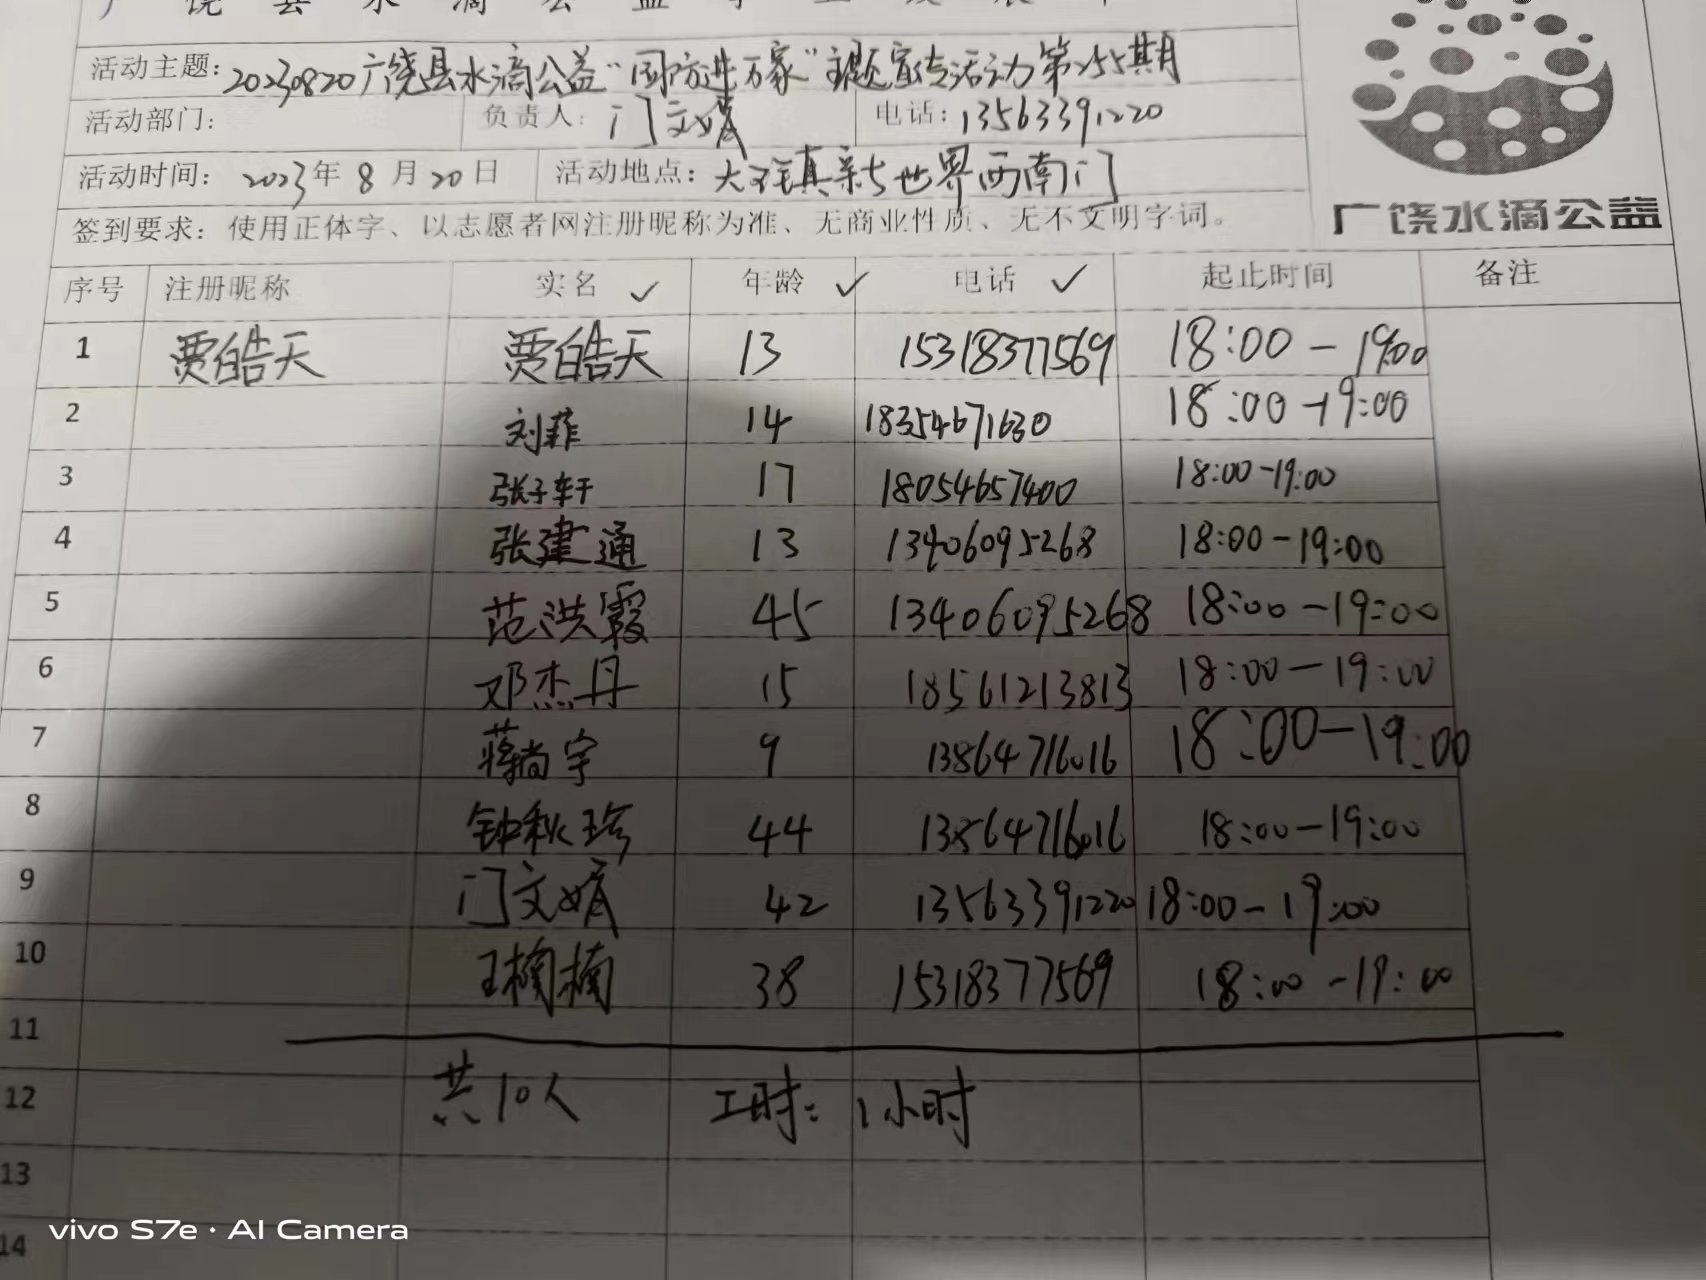 广饶县水滴公益
活动主题：20230820广饶县水滴公益"国防进万家"主题宣传活动第255期
活动部门： 负责人：门文娟 电话：13563391220
活动时间：2023年8月20日 活动地点：大王镇新世界西南门
签到要求：使用正体字、以志愿者网注册昵称为准、无商业性质、无不文明字词。
广饶水滴公益
序号 注册昵称 实名 ✓ 年龄 ✓ 电话 ✓ 起止时间 备注
1 贾皓天 贾皓天 13 15318377569 18:00-19:00
2 刘菲 14 18354671630 18:00-19:00
3 张子轩 17 18054657400 18:00-19:00
4 张建通 13 13406095268 18:00-19:00
5 范洪霞 45 13406095268 18:00-19:00
6 邓杰丹 15 18561213813 18:00-19:00
7 蒋尚宇 9 13864716016 18:00-19:00
8 钟秋珍 44 13864716016 18:00-19:00
9 门文娟 42 13563391220 18:00-19:00
10 王楠楠 38 15318377569 18:00-19:00
11
12 共10人 工时：1小时
13
14
vivo S7e · AI Camera